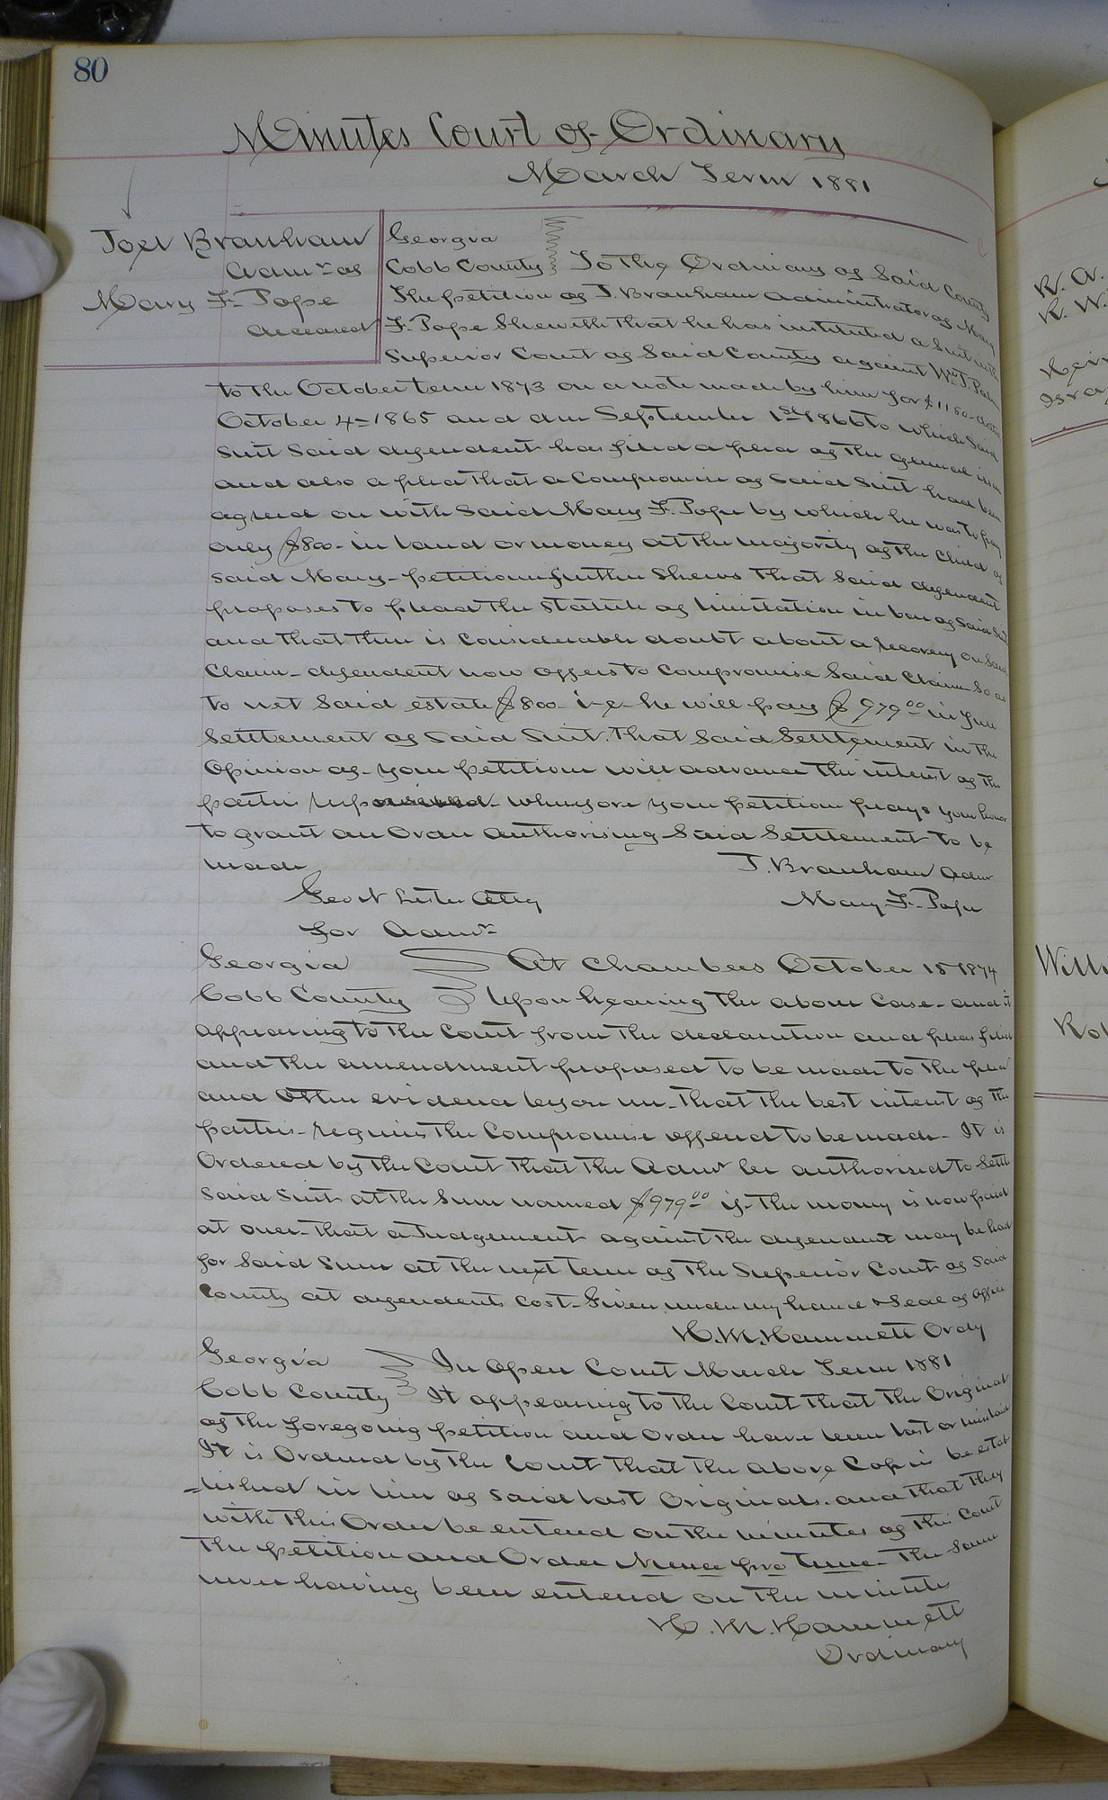 80
Minutes Court of Ordinary
March Term 1881
Joel Branham
Admr of
Mary F. Pope
deceased
Georgia
Cobb County To the Ordinary of Said County
The petition of J. Branham Administrator of Mary
F. Pope Sheweth that he has instituted a Suit with
Superior Court of Said County against Wm J.
to the October term 1873 on a note made by him for $1180 - dated
October 4 - 1865 and due September 1st 1866 to which Said
Suit Said defendent has filed a plea of the general issue
and also a plea that a Compromise of Said Suit had been
agreed on with Said Mary F. Pope by which he was to pay
only $800 - in land or money at the majority of the Child of
Said Mary - petitioner further Shews that Said defendent
proposes to plead the Statute of limitation in bar of Said Suit
and that there is considerable doubt about a recovery on Said
Claim - defendent now offers to compromise Said Claim So as
to net Said estate $800 - i-e- he will pay $979.00 in full
Settlement of Said Suit. That Said Settlement in the
Opinion of - your petitioner will advance the interest of the
parties represented - Wherefore your petitioner prays your honor
to grant an Order Authorising Said Settlement to be
made J. Branham Admr
Geo N Lester Atty Mary F. Pope
for Admr
Georgia At Chambers October 15 1874
Cobb County Upon hearing the above Case - and it
appearing to the Court from the declaration and pleas filed
and the amendment proposed to be made to the plea
and other evidence before me - that the best interest of the
parties - requires the Compromise offered to be made - It is
Ordered by the Court that the Admr be authorised to Settle
Said Suit at the Sum named $979.00 if - the money is now paid
at once - that a Judgement against the defendent may be had
for Said Sum at the next term of the Superior Court of Said
County at defendents Cost - Given under my hand & Seal of office
H. M. Hammett Ordy
Georgia In Open Court March Term 1881
Cobb County It appearing to the Court that the Original
of the foregoing petition and Order have been lost or mislaid
It is Ordered by the Court that the above Copies be estab
-lished in lieu of said lost Originals. and that they
with this Order be entered on the minutes of this Court
the petition and Order Nunc pro Tunc - the Same
never having been entered on the minutes
H. M. Hammett
Ordinary
R. A.
R. W.
Will